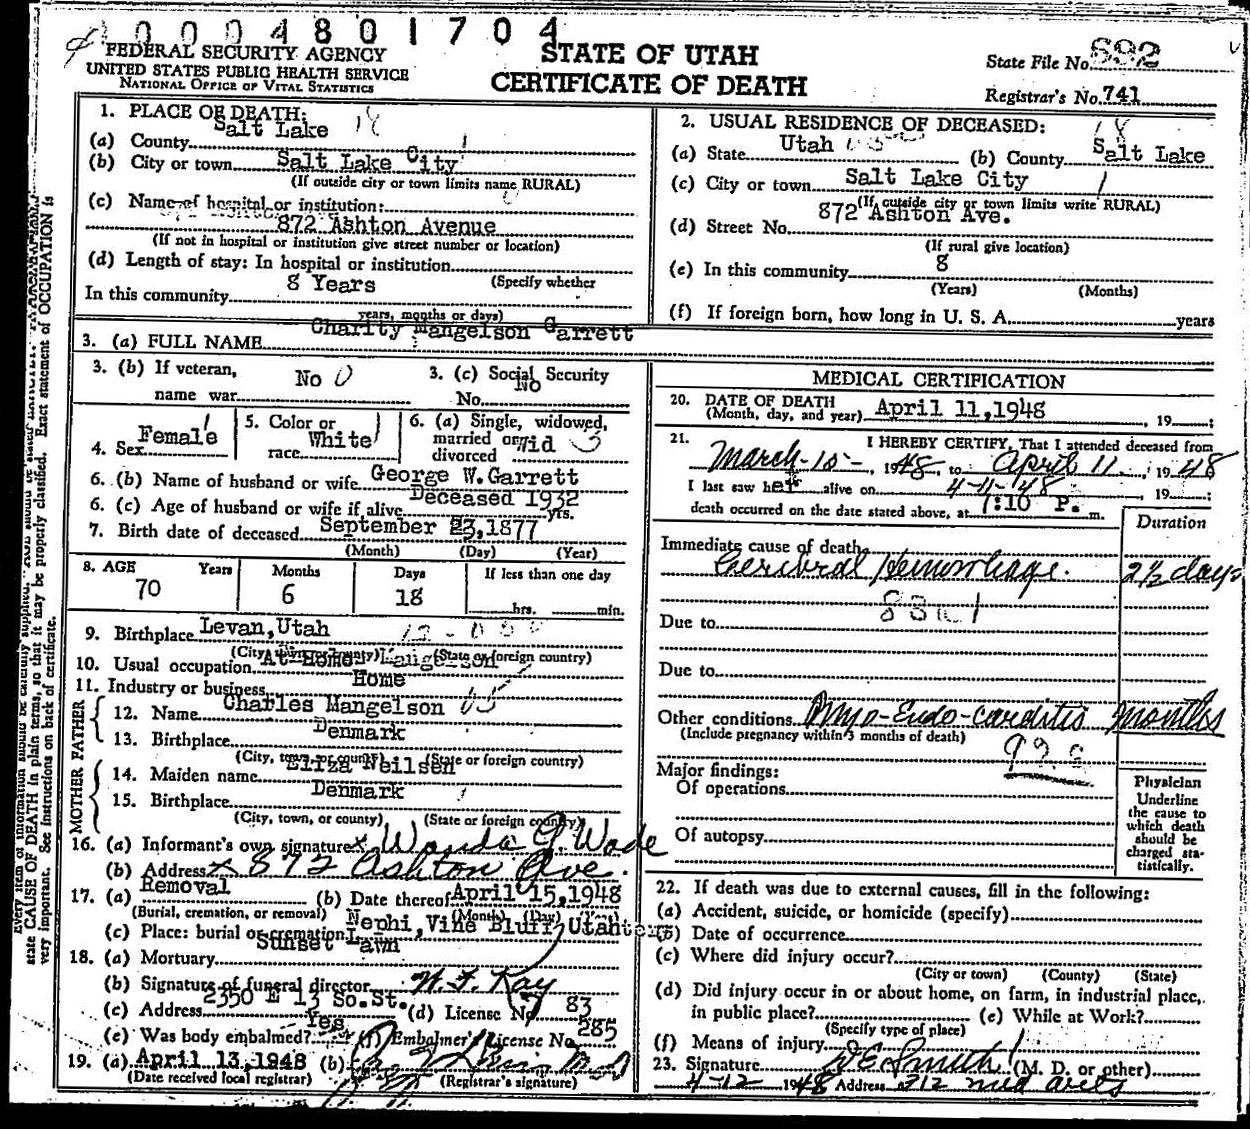 0004801704
FEDERAL SECURITY AGENCY
UNITED STATES PUBLIC HEALTH SERVICE
NATIONAL OFFICE OF VITAL STATISTICS
STATE OF UTAH
CERTIFICATE OF DEATH
State File No. 692
Registrar's No. 741
1. PLACE OF DEATH: 18
(a) County Salt Lake
(b) City or town Salt Lake City
(If outside city or town limits name RURAL)
(c) Name of hospital or institution:
872 Ashton Avenue
(If not in hospital or institution give street number or location)
(d) Length of stay: In hospital or institution
(Specify whether
In this community 8 Years
years, months or days)
2. USUAL RESIDENCE OF DECEASED: 18
(a) State Utah (b) County Salt Lake
(c) City or town Salt Lake City
(If outside city or town limits write RURAL)
(d) Street No. 872 Ashton Ave.
(If rural give location)
(e) In this community 8
(Years) (Months)
(f) If foreign born, how long in U. S. A. years
3. (a) FULL NAME Charity Mangelson Garrett
3. (b) If veteran, name war No
3. (c) Social Security No. No
4. Sex Female
5. Color or race White
6. (a) Single, widowed, married or divorced Wid
6. (b) Name of husband or wife George W. Garrett
6. (c) Age of husband or wife if alive Deceased 1932 yrs.
7. Birth date of deceased September 23, 1877
(Month) (Day) (Year)
8. AGE Years Months Days If less than one day
70 6 18 hrs. min.
9. Birthplace Levan, Utah
(City, town or county) (State or foreign country)
10. Usual occupation At Home
11. Industry or business Home
FATHER
12. Name Charles Mangelson
13. Birthplace Denmark
(City, town or county) (State or foreign country)
MOTHER
14. Maiden name Eliza Neilsen
15. Birthplace Denmark
(City, town, or county) (State or foreign country)
16. (a) Informant's own signature x Wanda G. Wade
(b) Address x 872 Ashton Ave.
17. (a) Removal (b) Date thereof April 15, 1948
(Burial, cremation, or removal) (Month) (Day) (Year)
(c) Place: burial or cremation Nephi, Vine Bluff, Utah
18. (a) Mortuary Sunset Lawn
(b) Signature of funeral director
(c) Address 2350 E 13 So. St. (d) License No. 83
(e) Was body embalmed? Yes (f) Embalmer's License No. 285
19. (a) April 13, 1948 (b)
(Date received local registrar) (Registrar's signature)
MEDICAL CERTIFICATION
20. DATE OF DEATH
(Month, day, and year) April 11, 1948, 19 ;
21. I HEREBY CERTIFY, That I attended deceased from
March-15-, 1948, to April 11, 1948
I last saw her alive on 4-11-48, 19 ;
death occurred on the date stated above, at 7:10 P. m.
Duration
Immediate cause of death
Cerebral Hemorrhage. 2½ days
Due to
Due to
Other conditions Myo-Endo-carditis months
(Include pregnancy within 3 months of death)
Major findings:
Of operations
Of autopsy
Physician
Underline
the cause to
which death
should be
charged sta-
tistically.
22. If death was due to external causes, fill in the following:
(a) Accident, suicide, or homicide (specify)
(b) Date of occurrence
(c) Where did injury occur?
(City or town) (County) (State)
(d) Did injury occur in or about home, on farm, in industrial place,
in public place? (e) While at Work?
(Specify type of place)
(f) Means of injury
23. Signature W E Smith (M. D. or other)
4-12 1948 Address 212 Med Arts